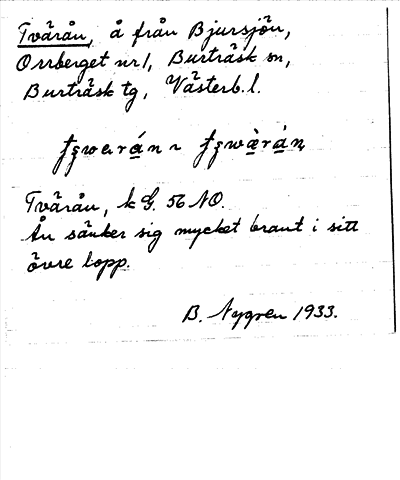 Tvärån, å från Bjursjön,
Orrberget nr 1, Burträsk sn,
Burträsk tg, Västerb. l.
Tvärån, k G. 56 NO.
Ån sänker sig mycket brant i sitt
övre lopp.
B. Nygren 1933.